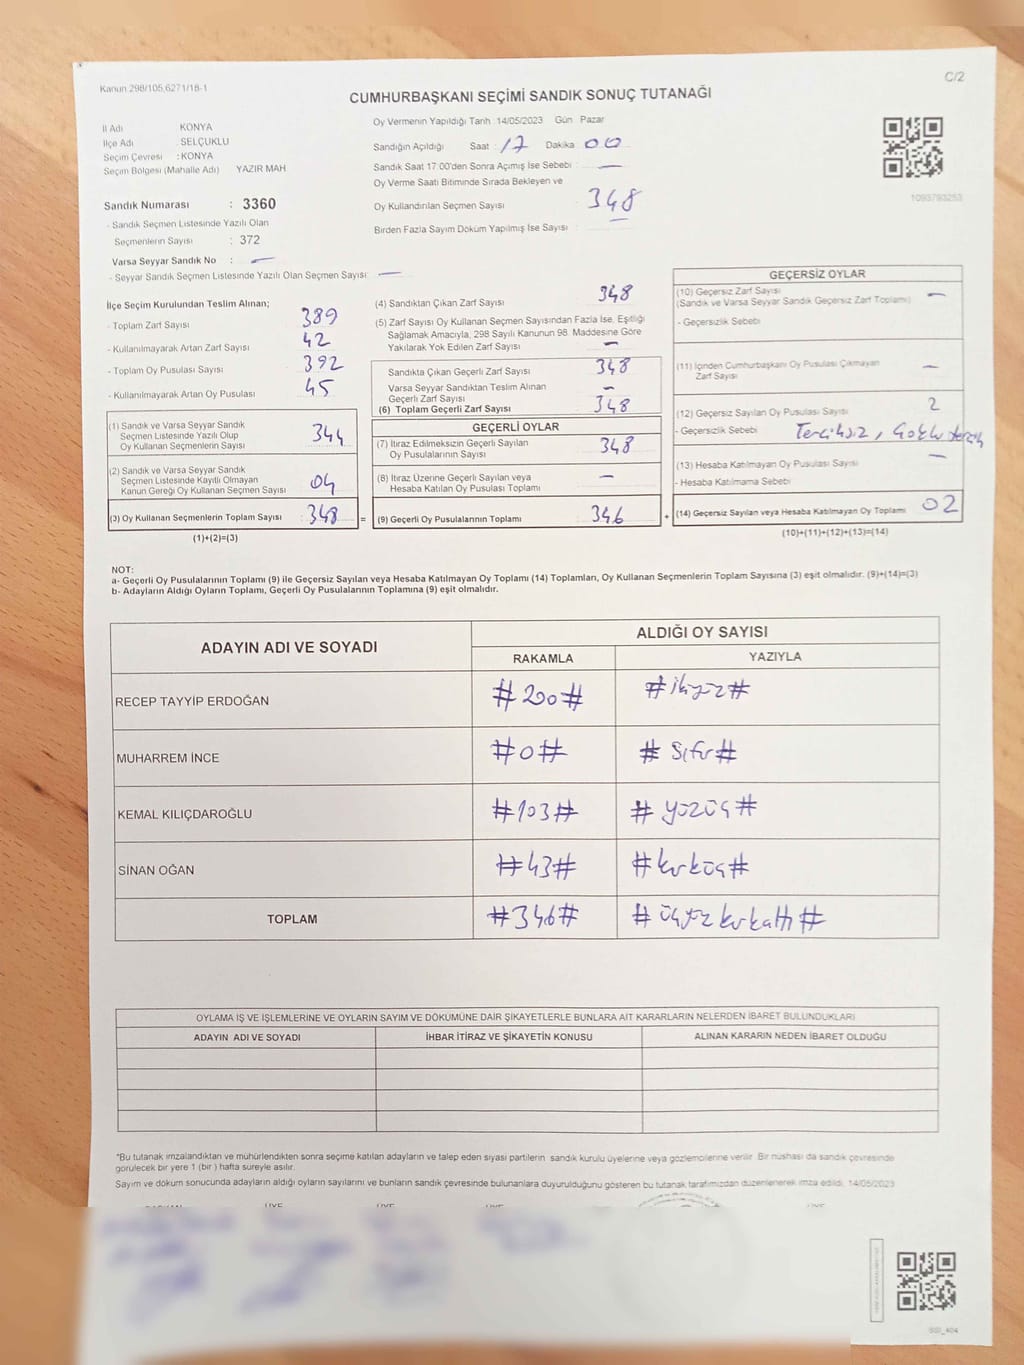 Kanun 298/105,6271/18-1
C/2
CUMHURBAŞKANI SEÇİMİ SANDIK SONUÇ TUTANAĞI
İl Adı KONYA
İlçe Adı : SELÇUKLU
Seçim Çevresi : KONYA
Seçim Bölgesi (Mahalle Adı) YAZIR MAH
Sandık Numarası : 3360
- Sandık Seçmen Listesinde Yazılı Olan
Seçmenlerin Sayısı : 372
Varsa Seyyar Sandık No : —
- Seyyar Sandık Seçmen Listesinde Yazılı Olan Seçmen Sayısı: —
Oy Vermenin Yapıldığı Tarih :14/05/2023 Gün Pazar
Sandığın Açıldığı Saat : 17 Dakika 00
Sandık Saat 17:00'den Sonra Açımış İse Sebebi : —
Oy Verme Saati Bitiminde Sırada Bekleyen ve
Oy Kullandırılan Seçmen Sayısı 348
Birden Fazla Sayım Döküm Yapılmış İse Sayısı :
1093793253
İlçe Seçim Kurulundan Teslim Alınan;
- Toplam Zarf Sayısı : 389
- Kullanılmayarak Artan Zarf Sayısı : 42
- Toplam Oy Pusulası Sayısı : 392
- Kullanılmayarak Artan Oy Pusulası : 45
(1) Sandık ve Varsa Seyyar Sandık
Seçmen Listesinde Yazılı Olup
Oy Kullanan Seçmenlerin Sayısı : 344
(2) Sandık ve Varsa Seyyar Sandık
Seçmen Listesinde Kayıtlı Olmayan
Kanun Gereği Oy Kullanan Seçmen Sayısı : 04
(3) Oy Kullanan Seçmenlerin Toplam Sayısı : 348 =
(1)+(2)=(3)
(4) Sandıktan Çıkan Zarf Sayısı : 348
(5) Zarf Sayısı Oy Kullanan Seçmen Sayısından Fazla İse, Eşitliği
Sağlamak Amacıyla, 298 Sayılı Kanunun 98. Maddesine Göre
Yakılarak Yok Edilen Zarf Sayısı : —
Sandıkta Çıkan Geçerli Zarf Sayısı : 348
Varsa Seyyar Sandıktan Teslim Alınan
Geçerli Zarf Sayısı : —
(6) Toplam Geçerli Zarf Sayısı : 348
GEÇERLİ OYLAR
(7) İtiraz Edilmeksizin Geçerli Sayılan
Oy Pusulalarının Sayısı : 348
(8) İtiraz Üzerine Geçerli Sayılan veya
Hesaba Katılan Oy Pusulası Toplamı : —
(9) Geçerli Oy Pusulalarının Toplamı : 346 +
GEÇERSİZ OYLAR
(10) Geçersiz Zarf Sayısı : —
(Sandık ve Varsa Seyyar Sandık Geçersiz Zarf Toplamı)
- Geçersizlik Sebebi :
(11) İçinden Cumhurbaşkanı Oy Pusulası Çıkmayan
Zarf Sayısı : —
(12) Geçersiz Sayılan Oy Pusulası Sayısı : 2
- Geçersizlik Sebebi : Tercihsiz,
(13) Hesaba Katılmayan Oy Pusulası Sayısı : —
- Hesaba Katılmama Sebebi :
(14) Geçersiz Sayılan veya Hesaba Katılmayan Oy Toplamı : 02
(10)+(11)+(12)+(13)=(14)
NOT:
a- Geçerli Oy Pusulalarının Toplamı (9) ile Geçersiz Sayılan veya Hesaba Katılmayan Oy Toplamı (14) Toplamları, Oy Kullanan Seçmenlerin Toplam Sayısına (3) eşit olmalıdır. (9)+(14)=(3)
b- Adayların Aldığı Oyların Toplamı, Geçerli Oy Pusulalarının Toplamına (9) eşit olmalıdır.
ADAYIN ADI VE SOYADI ALDIĞI OY SAYISI
RAKAMLA YAZIYLA
RECEP TAYYİP ERDOĞAN #200# #ikiyüz#
MUHARREM İNCE #0# #Sıfır#
KEMAL KILIÇDAROĞLU #103# #yüzüç#
SİNAN OĞAN #43# #kırküç#
TOPLAM #346# #üçyüzkırkaltı#
OYLAMA İŞ VE İŞLEMLERİNE VE OYLARIN SAYIM VE DÖKÜMÜNE DAİR ŞİKAYETLERLE BUNLARA AİT KARARLARIN NELERDEN İBARET BULUNDUKLARI
ADAYIN ADI VE SOYADI İHBAR İTİRAZ VE ŞİKAYETİN KONUSU ALINAN KARARIN NEDEN İBARET OLDUĞU
*Bu tutanak imzalandıktan ve mühürlendikten sonra seçime katılan adayların ve talep eden siyasi partilerin sandık kurulu üyelerine veya gözlemcilerine verilir. Bir nüshası da sandık çevresinde
görülecek bir yere 1 (bir) hafta süreyle asılır.
Sayım ve döküm sonucunda adayların aldığı oyların sayılarını ve bunların sandık çevresinde bulunanlara duyurulduğunu gösteren bu tutanak tarafımızdan düzenlenerek imza edildi. 14/05/2023